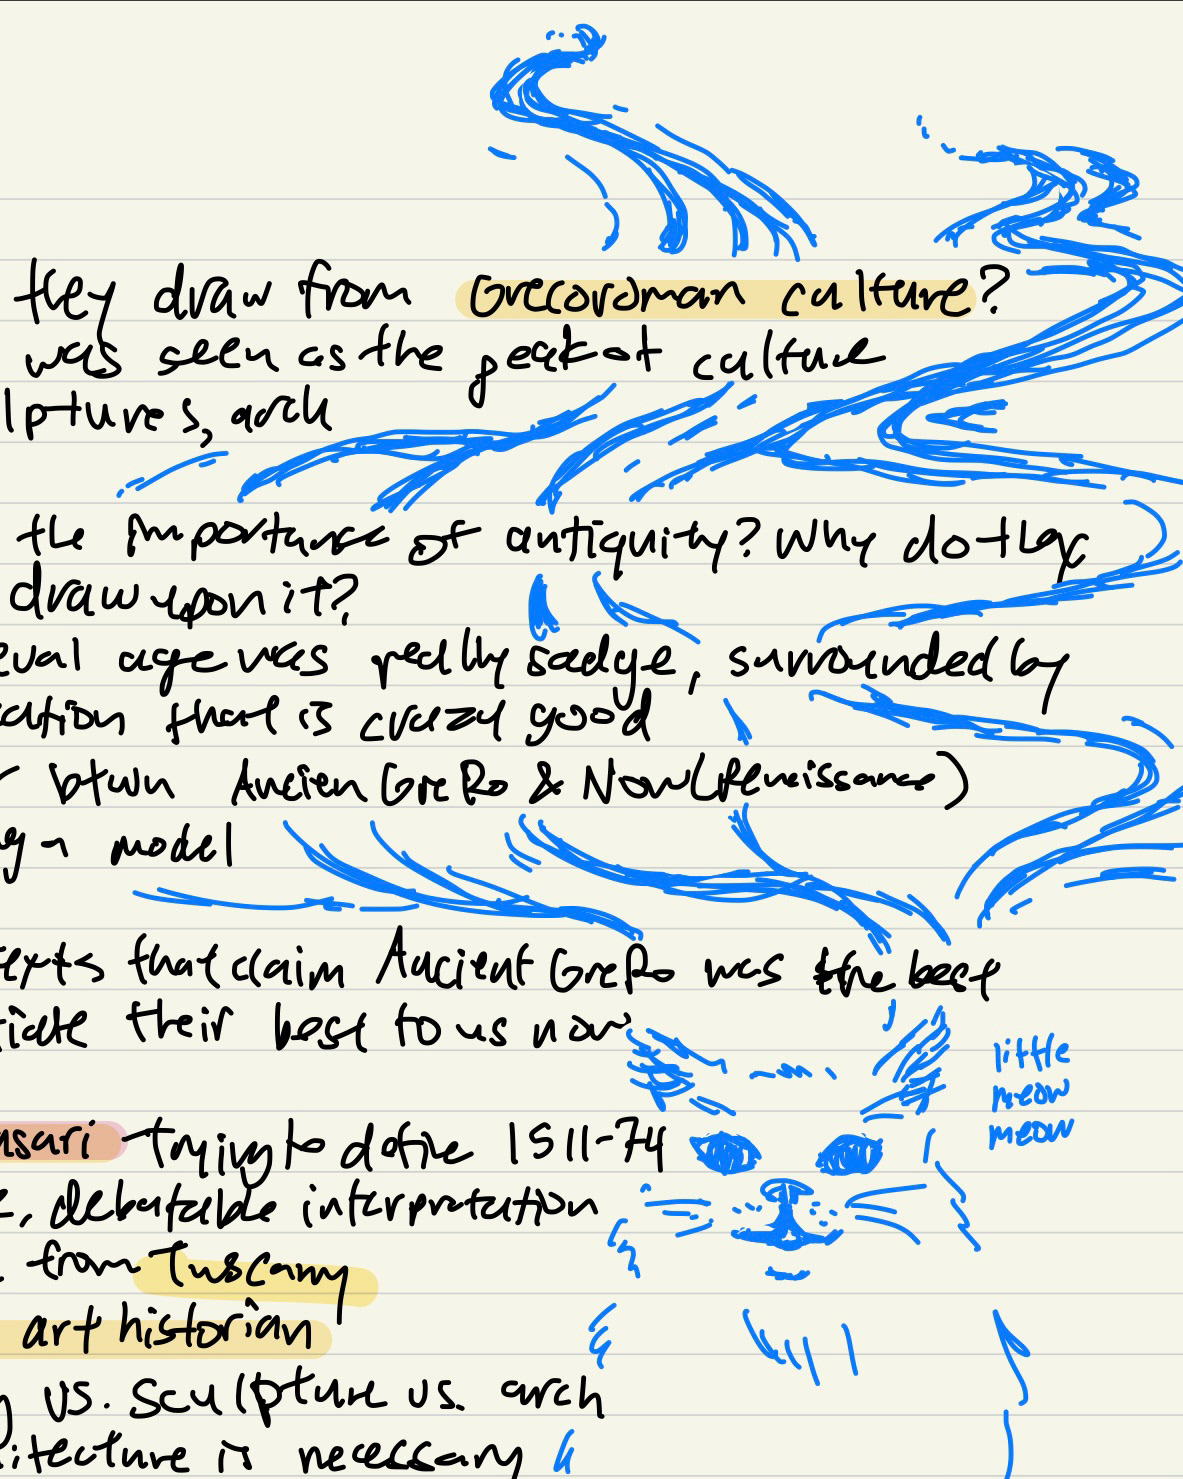 they draw from Grecoroman culture?
was seen as the peak of culture
lptures, arch
the importance of antiquity? Why do they
draw upon it?
eval age was really sadge, surrounded by
cation that is crazy good
r btwn Ancien GreRo & Now (Renaissance)
g a model
texts that claim Ancient GreRo was the best
their best to us now
asari - trying to define 1511-74
e, debatable interpretation
from Tuscany
art historian
g vs. sculpture vs. arch
itecture is necessary
little
meow
meow